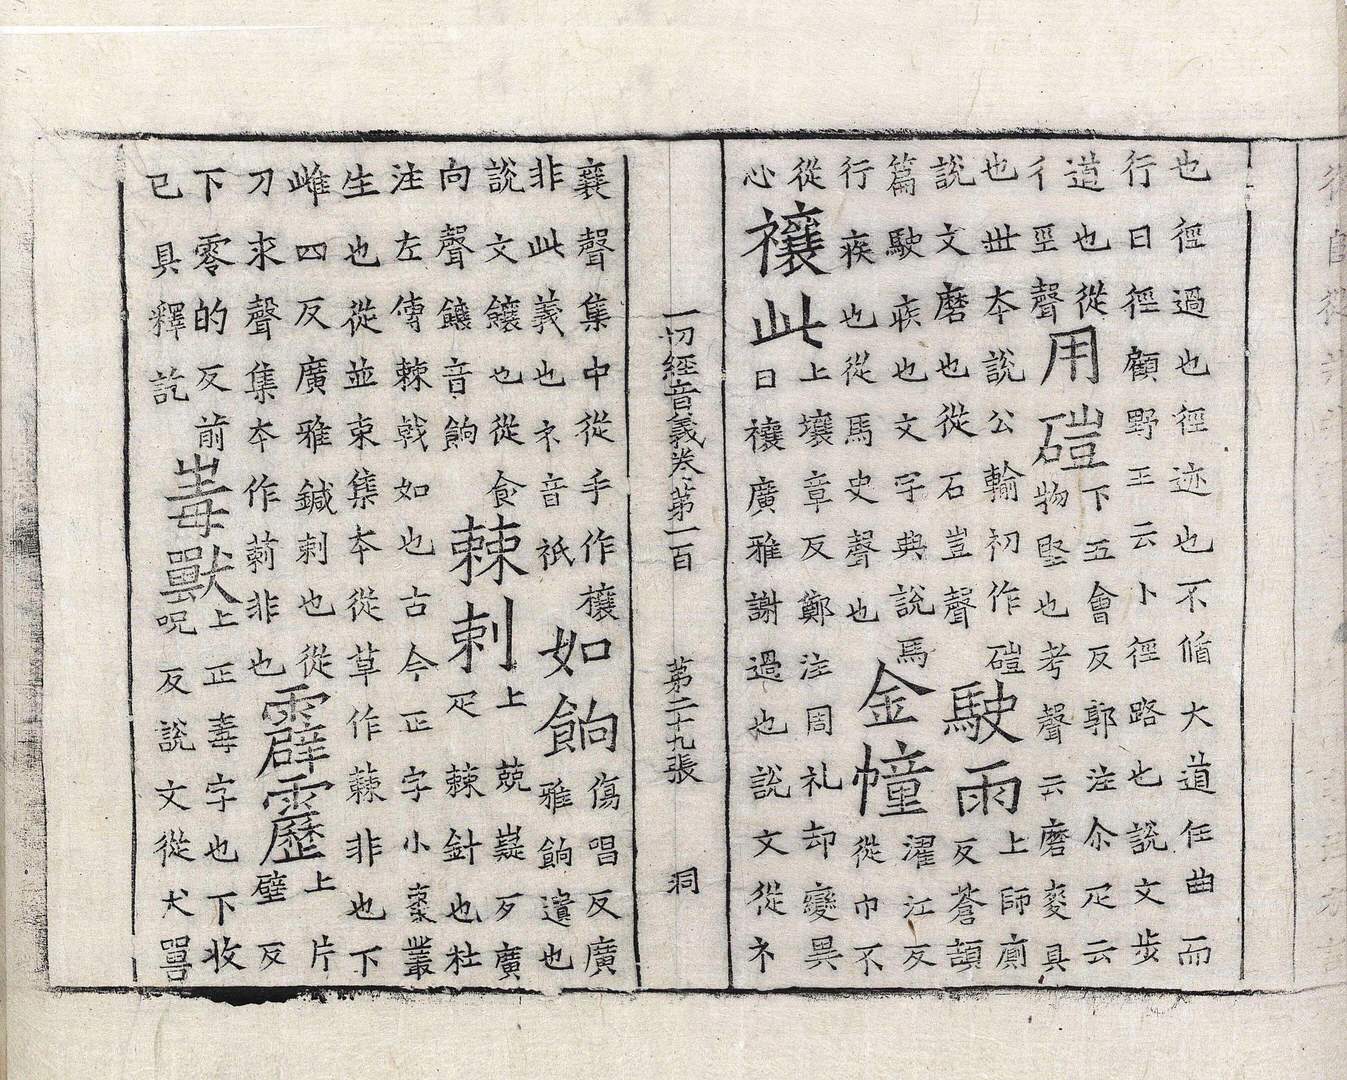 也徑過也徑迹也不循大道任曲而
行曰徑顧野王云卜徑路也說文步
道也從
彳巠聲
用磑
下五會反郭注尒疋云
物堅也考聲云磨麥具
也丗夲說公輸初作磑
說文磨也從石豈聲
駛雨
上師廁
反蒼頡
篇駛疾也文字典說馬
行疾也從馬史聲也
金幢
濯江反
從巾不
從
心
禳此
上壤章反鄭注周礼却變異
曰禳廣雅謝過也說文從礻
一切經音義卷第一百 第二十九張 洞
襄聲集中從手作欀
非此義也礻音祇
如餉
傷唱反廣
雅餉遺也
說文饟也從食
向聲饟音餉
棘刺
上兢嶷歹廣
疋棘針也杜
注左傳棘戟如也古今正字小棗叢
生也從並朿集夲從草作蕀非也下
雌四反廣雅鍼刺也從
刀朿聲集夲作莿非也
霹靂
上片
壁反
下零的反前
已具釋訖
毒獸
上正毒字也下收
呪反說文從犬嘼